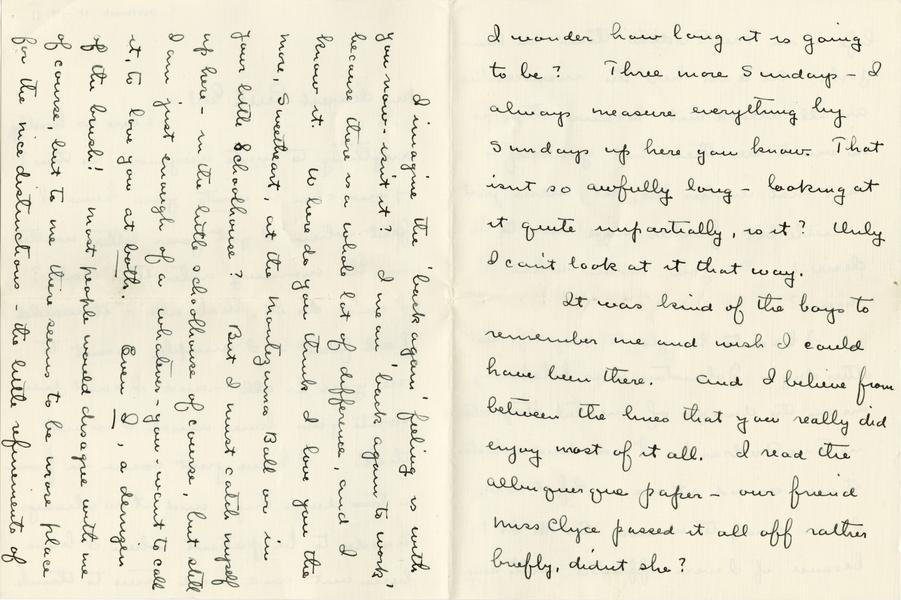 I wonder how long it is going
to be? Three more Sundays – I
always measure everything by
Sundays up here you know. That
isnt so awfully long – looking at
it quite impartially, is it? Only
I can't look at it that way.
It was kind of the boys to
remember me and wish I could
have been there. And I believe from
between the lines that you really did
enjoy most of it all. I read the
Albuquerque paper – our friend
Miss Clyce passed it all off rather
briefly, didnt she?
I imagine the 'back again' feeling is with
you now – isn't it? I mean 'back again to work',
because there is a whole lot of difference, and I
know it. Where do you think I love you the
more, Sweetheart, at the Montezuma Ball or in
your little Schoolhouse? But I must catch myself
up here – in the little schoolhouse of course, but still
I am just enough of a whatever-you-want to call
it, to love you at both. Even I, a denizen
of the brush! Most people would disagree with me
of course, but to me there seems to be more place
for the nice distinctions – the little refinements of